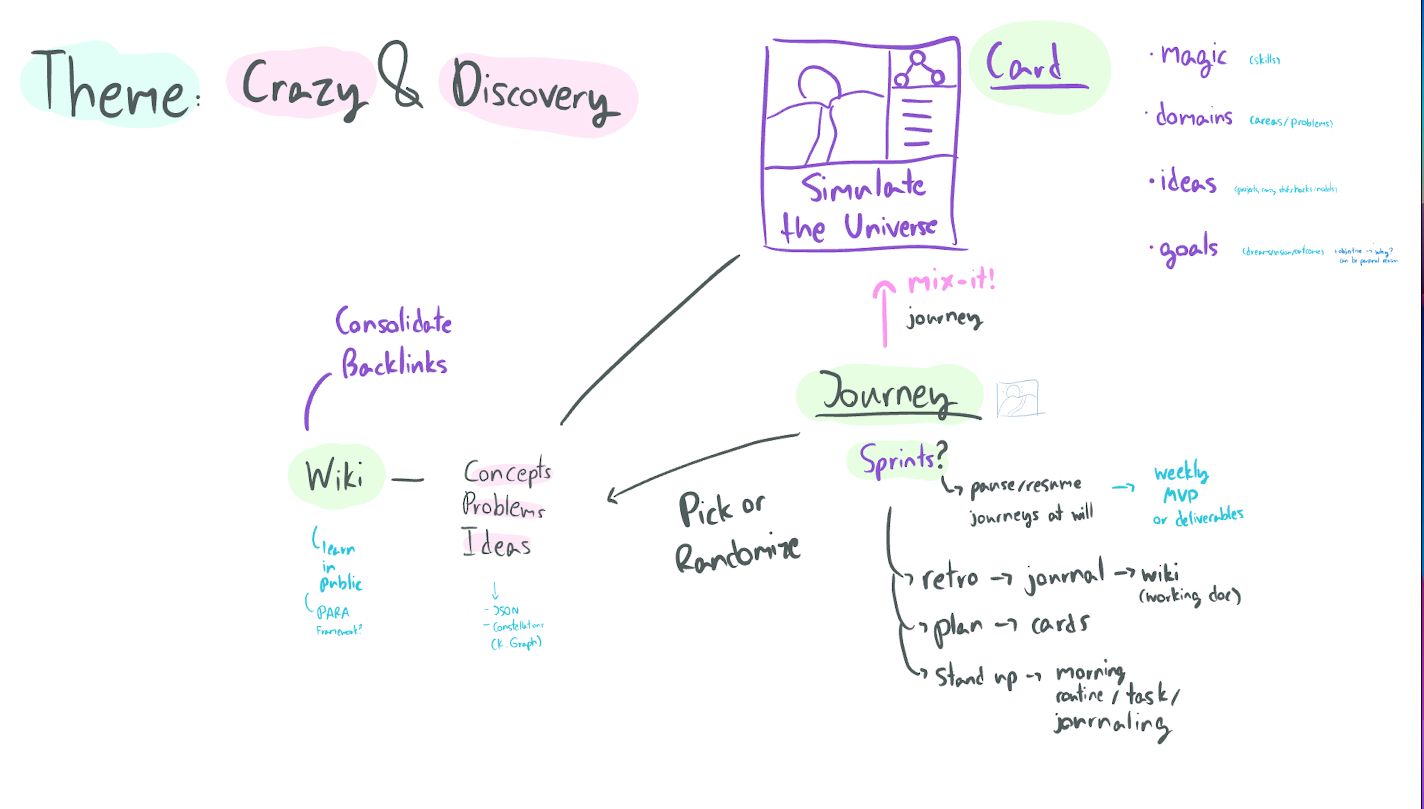 Theme: Crazy & Discovery
Simulate
the Universe
Card
• magic (skills)
• domains (areas/problems)
• ideas
• goals
mix-it!
journey
Consolidate
Backlinks
Journey
Sprints?
pause/resume
journeys at will
weekly
MVP
or deliverables
Wiki
Concepts
Problems
Ideas
Pick or
Randomize
learn
in
public
PARA
Framework?
- JSON
- Constellations
(K. Graph)
retro → journal → wiki
(working doc)
plan → cards
stand up → morning
routine / task /
journaling